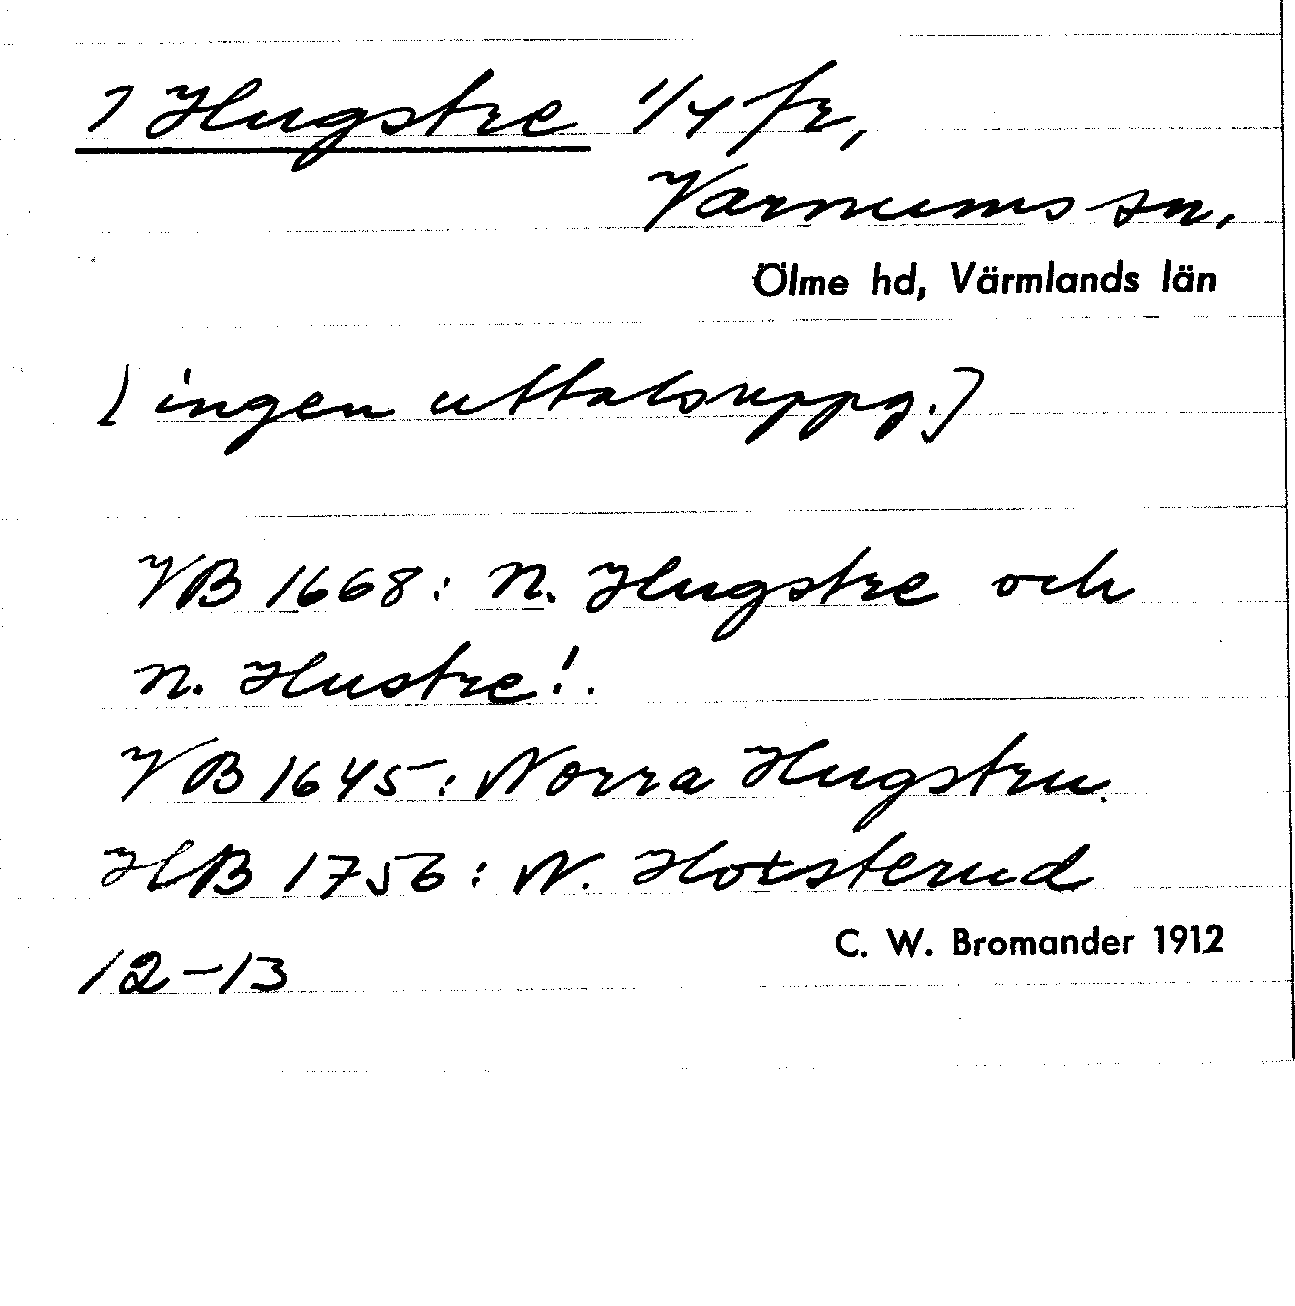 1 Hugstre 1/4 fr,
Varnums sn,
Ölme hd, Värmlands län
[ingen uttalsuppg.]
VB 1668: N. Hugstre och
N. Hustre!.
VB 1645: Norra Hugstru.
HB 1756: N. Hotsterud
C. W. Bromander 1912
12-13